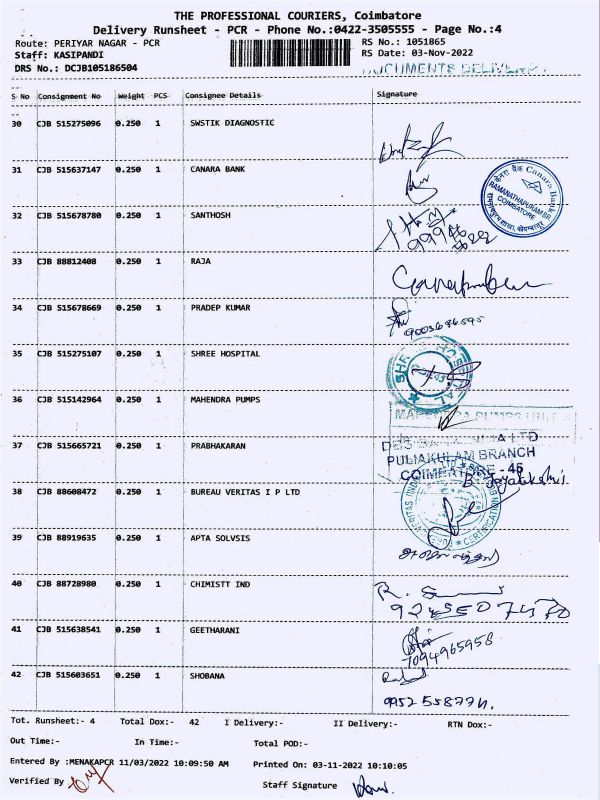 THE PROFESSIONAL COURIERS, Coimbatore
Delivery Runsheet - PCR - Phone No.:0422-3505555 - Page No.:4
Route: PERIYAR NAGAR - PCR
RS No.: 1051865
Staff: KASIPANDI
RS Date: 03-Nov-2022
DRS No.: DCJB105186504
DOCUMENTS DELIVERY
S No Consignment No Weight PCS Consignee Details Signature
30 CJB 515275096 0.250 1 SWSTIK DIAGNOSTIC
31 CJB 515637147 0.250 1 CANARA BANK
केनरा बैंक Canara Bank
RAMANATHAPURAM BR
COIMBATORE
32 CJB 515678780 0.250 1 SANTHOSH
33 CJB 88812408 0.250 1 RAJA
34 CJB 515678669 0.250 1 PRADEP KUMAR
9003686595
35 CJB 515275107 0.250 1 SHREE HOSPITAL
36 CJB 515142964 0.250 1 MAHENDRA PUMPS
37 CJB 515665721 0.250 1 PRABHAKARAN
PULIAKULAM BRANCH
COIMBATORE - 45
B. Jayalakshmi
38 CJB 88608472 0.250 1 BUREAU VERITAS I P LTD
39 CJB 88919635 0.250 1 APTA SOLVSIS
40 CJB 88728980 0.250 1 CHIMISTT IND
41 CJB 515638541 0.250 1 GEETHARANI
7094965958
42 CJB 515603651 0.250 1 SHOBANA
Tot. Runsheet:- 4 Total Dox:- 42 I Delivery:- II Delivery:- RTN Dox:-
Out Time:- In Time:- Total POD:-
Entered By :MENAKAPCR 11/03/2022 10:09:50 AM Printed On: 03-11-2022 10:10:05
Verified By Staff Signature